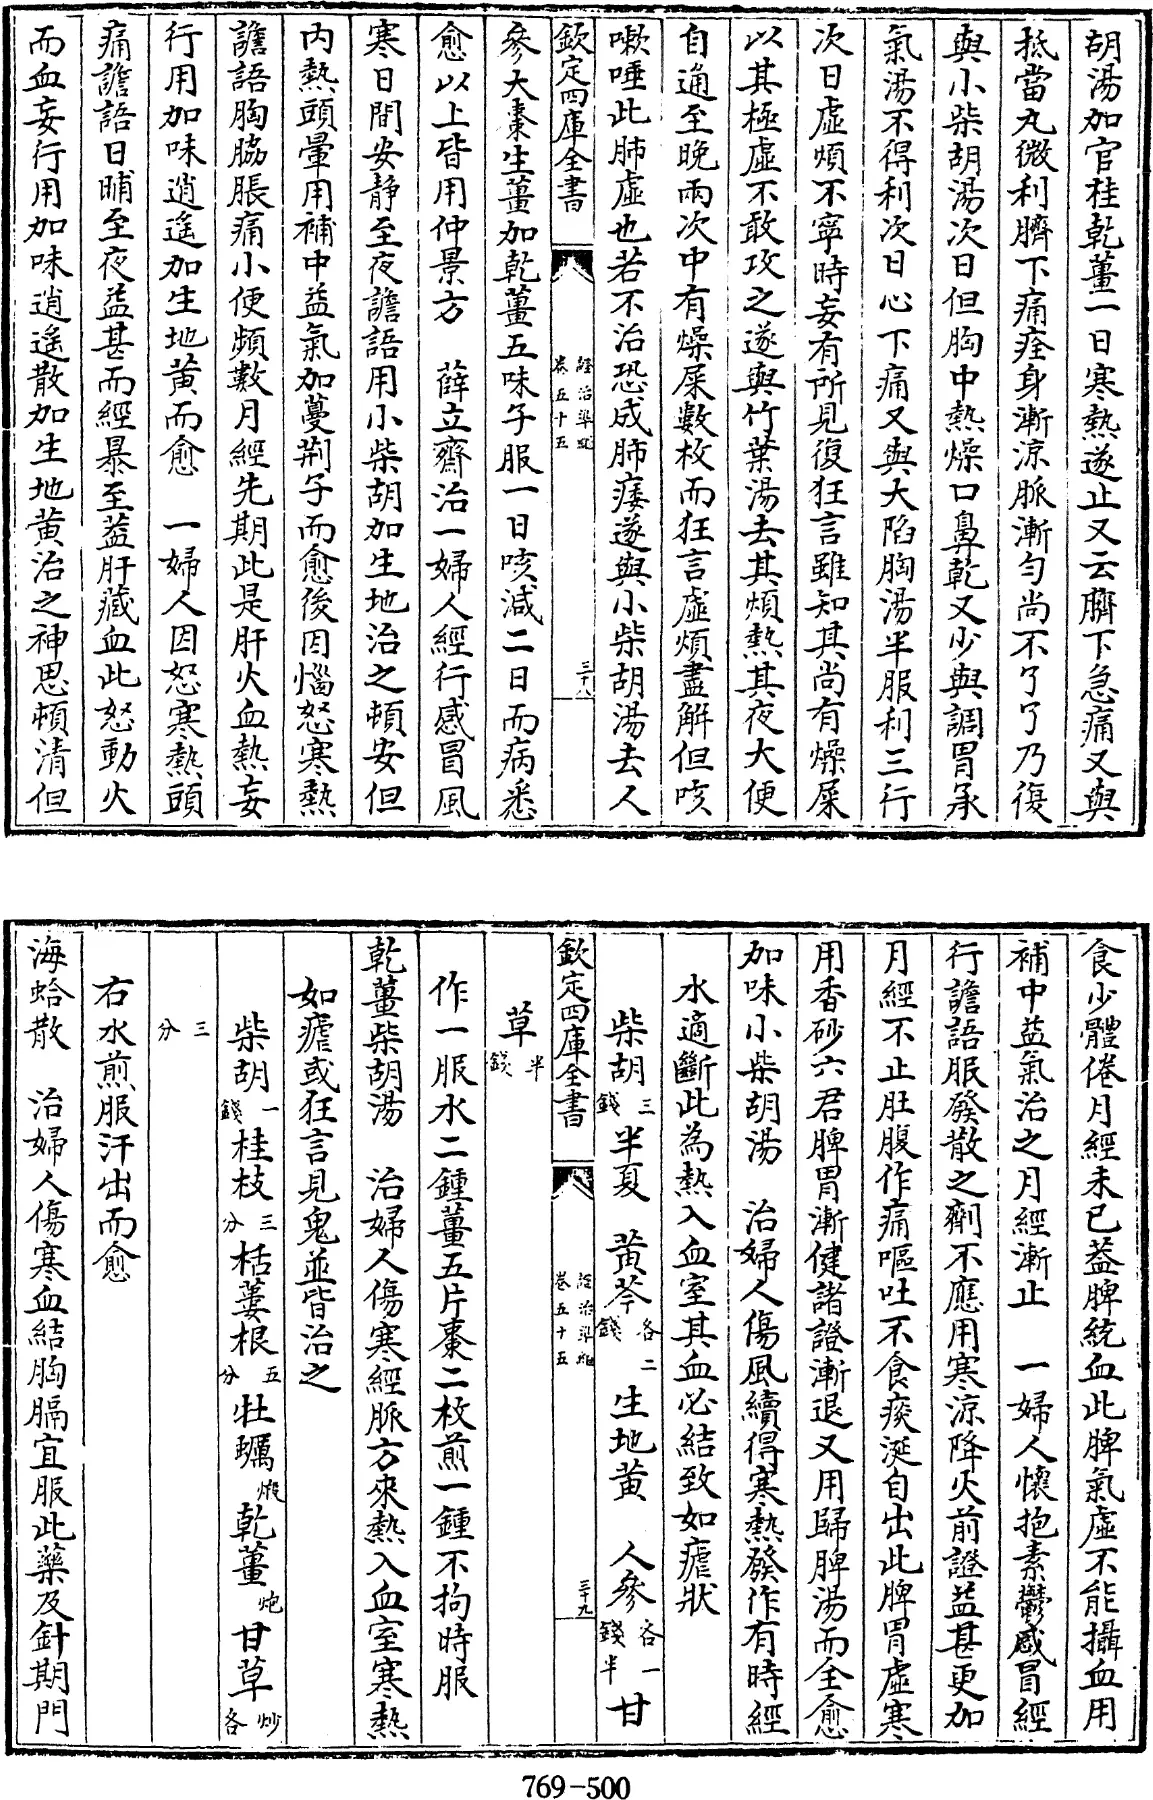 胡湯加官桂乾薑一日寒熱遂止又云臍下急痛又與
抵當丸微利臍下痛痊身漸涼脈漸勻尚不了了乃復
與小柴胡湯次日但胸中熱燥口鼻乾又少與調胃承
氣湯不得利次日心下痛又與大陷胸湯半服利三行
次日虛煩不寧時妄有所見復狂言雖知其尚有燥屎
以其極虛不敢攻之遂與竹葉湯去其煩熱其夜大便
自通至晚兩次中有燥屎數枚而狂言虛煩盡解但咳
嗽唾此肺虛也若不治恐成肺痿遂與小柴胡湯去人
欽定四庫全書
卷五十五
證治準繩
三十八
參大棗生薑加乾薑五味子服一日咳減二日而病悉
愈以上皆用仲景方　薛立齋治一婦人經行感冒風
寒日間安靜至夜譫語用小柴胡加生地治之頓安但
內熱頭暈用補中益氣加蔓荊子而愈後因惱怒寒熱
譫語胸脇脹痛小便頻數月經先期此是肝火血熱妄
行用加味逍遙加生地黃而愈　一婦人因怒寒熱頭
痛譫語日晡至夜益甚而經暴至蓋肝藏血此怒動火
而血妄行用加味逍遙散加生地黃治之神思頓清但
食少體倦月經未已蓋脾統血此脾氣虛不能攝血用
補中益氣治之月經漸止　一婦人懷抱素鬱感冒經
行譫語服發散之劑不應用寒涼降火前證益甚更加
月經不止肚腹作痛嘔吐不食痰涎自出此脾胃虛寒
用香砂六君脾胃漸健諸證漸退又用歸脾湯而全愈
加味小柴胡湯　治婦人傷風續得寒熱發作有時經
水適斷此為熱入血室其血必結致如瘧狀
柴胡三錢　半夏　黃芩各二錢　生地黃　人參各一錢半　甘
欽定四庫全書
卷五十五
證治準繩
三十九
草半錢
作一服水二鍾薑五片棗二枚煎一鍾不拘時服
乾薑柴胡湯　治婦人傷寒經脈方來熱入血室寒熱
如瘧或狂言見鬼並皆治之
柴胡一錢　桂枝三分　栝蔞根五分　牡蠣煅　乾薑炮　甘草炒各
三分
右水煎服汗出而愈
海蛤散　治婦人傷寒血結胸膈宜服此藥及針期門
769-500